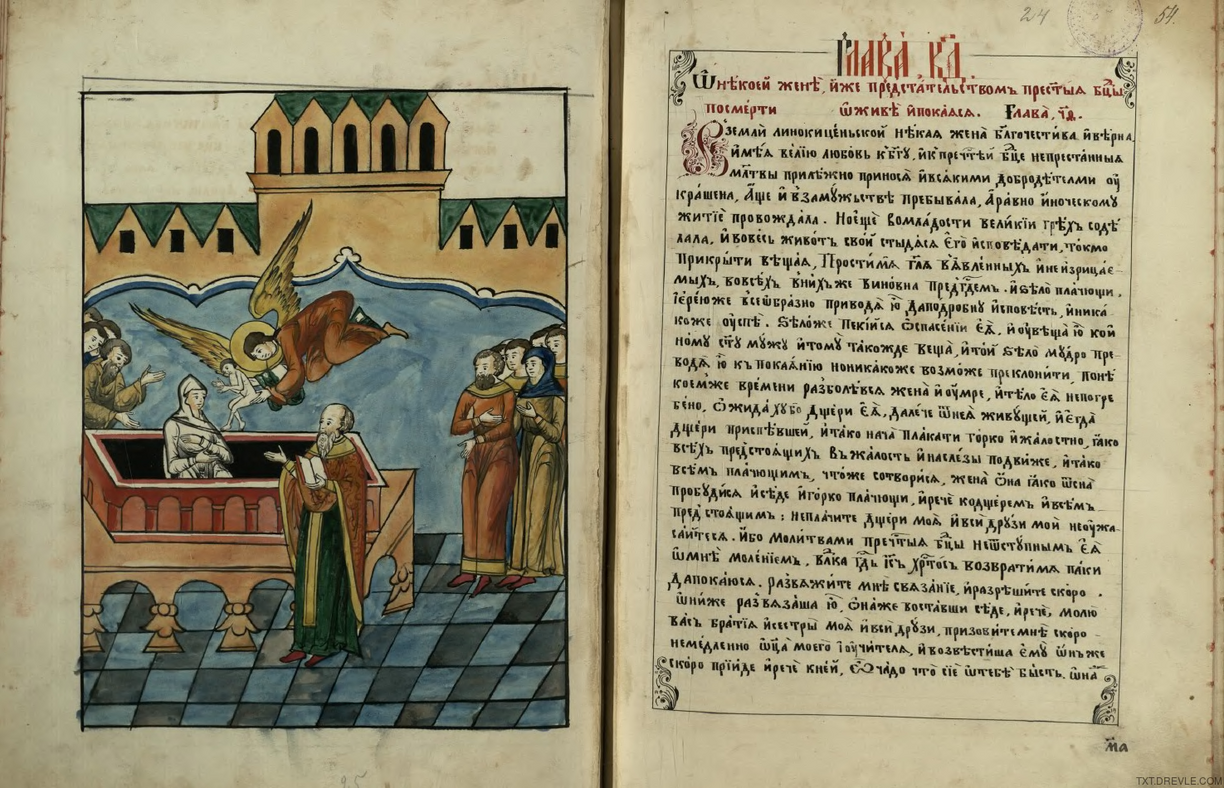 24 54.
Глава̀, к҃д.
Ѡ нѣ́коей женѣ̀, и҆́же предста́тельствомъ прест҃ы́ѧ бцⷣы
посме́рти ѡ҆живѐ и҆покаѧ́сѧ. Глава̀, ч҃д.
земли́ линокице́ньской нѣ́каѧ жена̀ бл҃гочести́ва и҆вѣ́рна
и҆мѣ́ѧ ве́лїю любо́вь к҃бг҃у, и҆к пречⷭ҇тѣй бцⷣе непреста́нныѧ
мл҃твы прилѣ́жно приносѧ̀ и҆всѧ́кими добродѣ́телми оу҆
кра́шена, А҆́ще и҆ взаму́жьствѣ пребыва́ла, А҆́равно и҆́ноческому
житїѐ провожда́ла. Но є҆щѐ вомла́дости вели́кїи грѣ́хъ содѣ́
лала, и҆ вове́сь живо́тъ сво́й стыдѧ́сѧ є҆го̀ и҆сповѣ́дати, то́кмо
прикры́ти вѣща́ѧ, Прости́мѧ гл҃ѧ в ѧ҆вле́нныхъ и҆неи҆зрица́е
мыхъ, вовсѣ́хъ вни́хъже вино́вна пред̾ бг҃омъ. и҆ ѕѣло̀ пла́чющи.
І҆ере́юже всеѡбра́зно приводѧ̀ ю҆̀ даподро́бну и҆сповѣ́сть, и҆ника
ко́же оу҆спѣ̀. Ѕѣло́же пекі́йсѧ ѡ҆спасе́нїи є҆ѧ̀, и҆ оу҆вѣща̀ ю҆̀ ко и҆
но́му ст҃у му́жу и҆ то́му та́кожде вѣща̀, и҆ то́й ѕѣло̀ му́дро пре
водѧ̀ ю҆̀ къ покаѧ́нїю но ника́коже возмо́же преклони́ти, понѣ̀
коемже вре́мени разболѣ́всѧ жена̀ и҆ оу҆́мре, и҆ тѣ́ло є҆ѧ̀ непогре
бено, ѡ҆жида́хубо дще́ри є҆ѧ̀, дале́че ѿнеѧ̀ живу́щей, и҆ є҆гда̀
дще́ри приспѣ́вшей, и҆ та́ко нача̀ пла́кати го́рко и҆ жа́лостно, ꙗ҆́ко
всѣ́хъ предстоѧ́щихъ в жа́лость и҆ насле́зы подви́же, и҆ та́ко
всѣ́мъ пла́чющимъ, что́же сотвори́сѧ, жена̀ ѻ҆́на ꙗ҆́ко ѿсна̀
пробуди́сѧ и҆ сѣ́де и҆ го́рко пла́чющи, и҆ речѐ кодще́ремъ и҆ всѣ́мъ
предстоѧ́щимъ: непла́чите дще́ри моѧ̀ и҆ вси́ дру́зи мои́ неоу҆жа
са́йтесѧ. и҆́бо моли́твами пречⷭ҇тыѧ бцⷣы неѿсту́пнымъ є҆ѧ̀
ѡ҆мнѣ̀ моле́нїемъ, влⷣка гдⷭ҇ь і҆с҃ъ хрⷭ҇то́съ возврати́мѧ па́ки
да пока́юсѧ. развѧжи́те мнѣ̀ свѧза́нїе, и҆ разрѣши́те ско́ро.
ѡ҆ни́же развѧза́ша ю҆̀, ѻ҆на́же воста́вши сѣ́де, и҆ речѐ, молю̀
ва́съ бра́тїѧ и҆ се́стры моѧ̀ и҆ вси́ дру́зи, призови́те мнѣ̀ ско́ро
неме́дленно ѻ҆ц҃а̀ моего̀ и҆ оу҆чи́телѧ, и҆ возвѣсти́ша є҆мꙋ̀ ѻ҆́нъже
ско́ро прїи́де и҆ речѐ кне́й, Ѽ ча́до что̀ сїѐ ѿтебѣ̀ бы́сть. ѻ҆на̀
TXT.DREVLE.COM